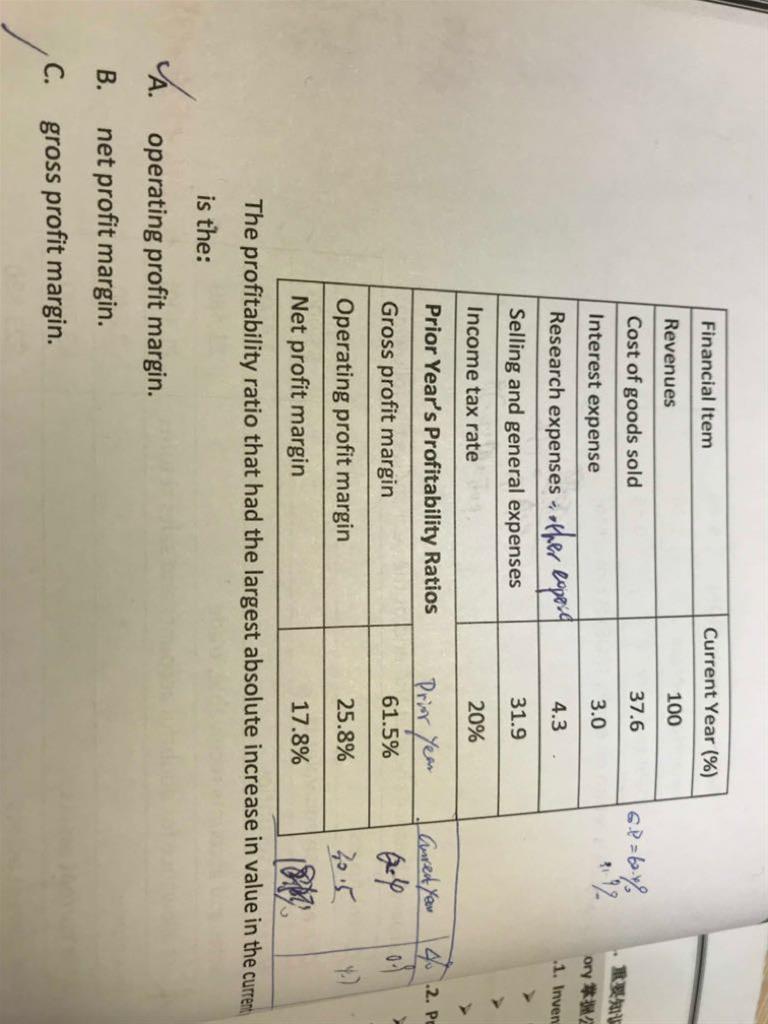 Financial Item Current Year (%)
Revenues 100
Cost of goods sold 37.6
Interest expense 3.0
Research expenses other expense 4.3
Selling and general expenses 31.9
Income tax rate 20%
Prior Year's Profitability Ratios Prior Year Current Year
Gross profit margin 61.5% 62.4 0.9
Operating profit margin 25.8% 30.5
Net profit margin 17.8%
The profitability ratio that had the largest absolute increase in value in the current
is the:
A. operating profit margin.
B. net profit margin.
C. gross profit margin.
重要知识
ory 掌握
.1. Inven
.2. Pr